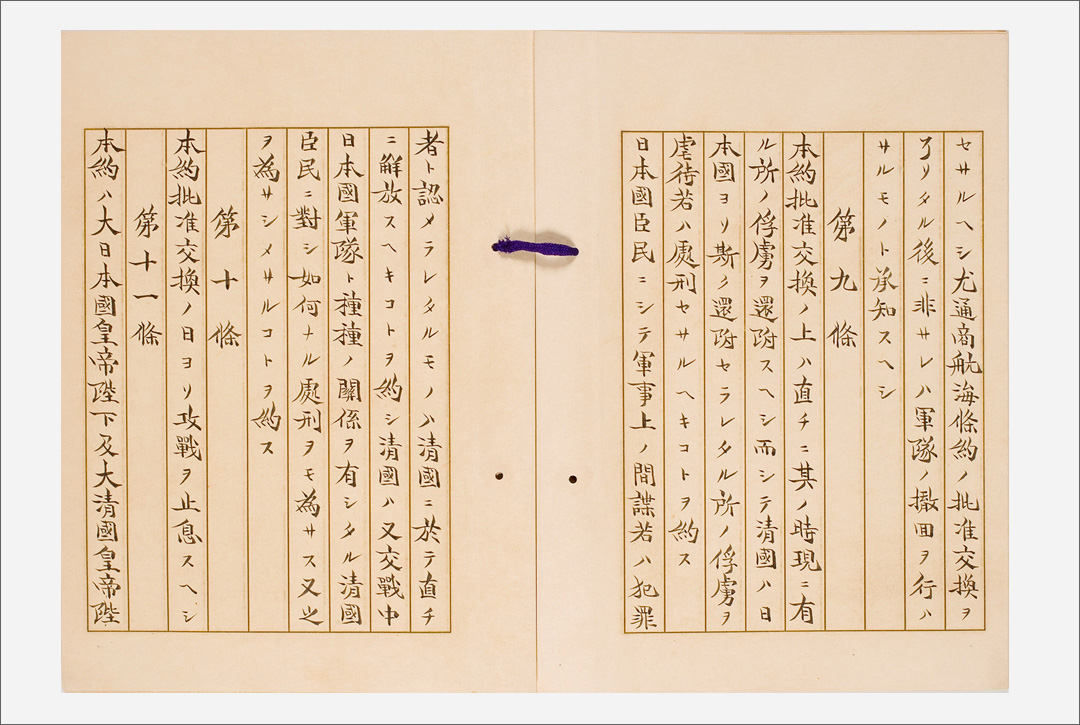 セサルヘシ尤通商航海條約ノ批准交換ヲ
了リタル後ニ非サレハ軍隊ノ撤回ヲ行ハ
サルモノト承知スヘシ
第九條
本約批准交換ノ上ハ直チニ其ノ時現ニ有
ル所ノ俘虜ヲ還附スヘシ而シテ清國ハ日
本國ヨリ斯ク還附セラレタル所ノ俘虜ヲ
虐待若ハ處刑セサルヘキコトヲ約ス
日本國臣民ニシテ軍事上ノ間諜若ハ犯罪
者ト認メラレタルモノハ清國ニ於テ直チ
ニ解放スヘキコトヲ約シ清國ハ又交戰中
日本國軍隊ト種種ノ關係ヲ有シタル清國
臣民ニ對シ如何ナル處刑ヲモ為サス又之
ヲ為サシメサルコトヲ約ス
第十條
本約批准交換ノ日ヨリ攻戰ヲ止息スヘシ
第十一條
本約ハ大日本國皇帝陛下及大清國皇帝陛